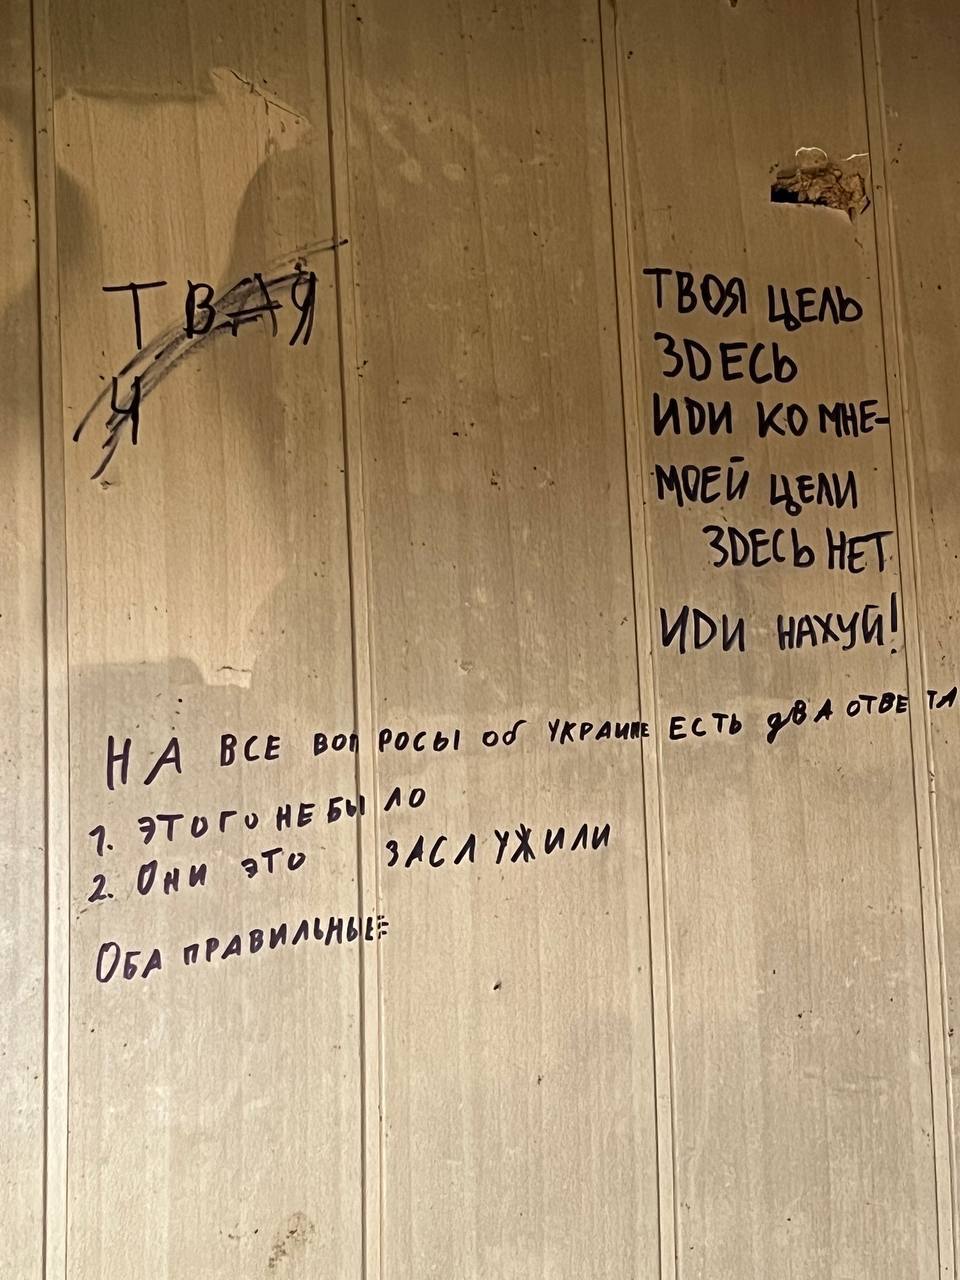 ТВОЯ ЦЕЛЬ
ЗДЕСЬ
ИДИ КО МНЕ-
МОЕЙ ЦЕЛИ
ЗДЕСЬ НЕТ
ИДИ НАХУЙ!
НА ВСЕ ВОПРОСЫ ОБ УКРАИНЕ ЕСТЬ ДВА ОТВЕТА
1. ЭТОГО НЕ БЫЛО
2. ОНИ ЭТО ЗАСЛУЖИЛИ
ОБА ПРАВИЛЬНЫЕ